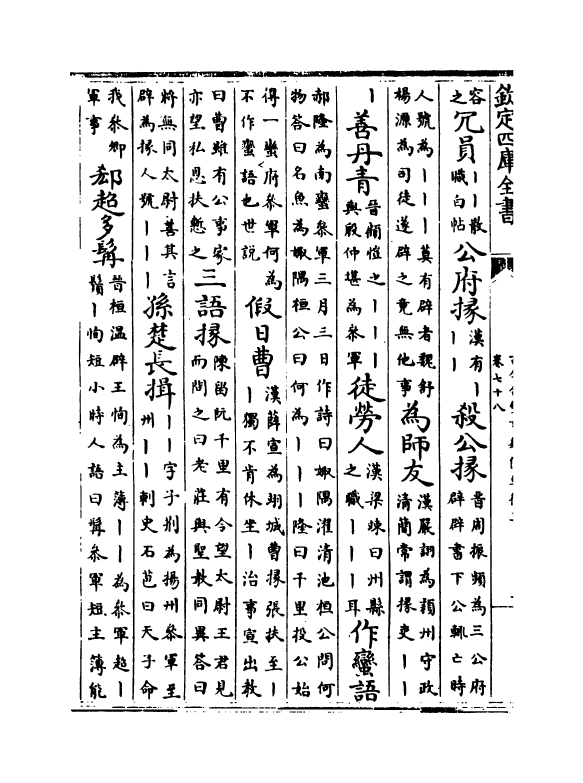 欽定四庫全書
卷七十八
容之冗員｜｜散職白帖公府掾漢有｜｜｜殺公掾晉周振頻為三公府辟辟書下公輒亡時
人號為｜｜｜莫有辟者魏舒楊源為司徒遂辟之竟無他事為師友漢嚴詡為潁州守政清簡常謂掾吏｜｜
｜善丹青晉顧愷之｜｜｜與殷仲堪為參軍徒勞人漢梁竦曰州縣之職｜｜｜耳作蠻語
郝隆為南蠻參軍三月三日作詩曰娵隅濯清池桓公問何物答曰名魚為娵隅桓公曰何為｜｜｜隆曰千里投公始
得一蠻府參軍何為不作蠻語也世說假日曹漢薛宣為翊城曹掾張扶至｜｜獨不肯休坐｜治事宣出教
曰曹雖有公事家亦望私恩扶慙之三語掾陳留阮千里有令望太尉王君見而問之曰老莊與聖教同異答曰
將無同太尉善其言辟為掾人號｜｜｜孫楚長揖｜｜字子荆為揚州參軍至州｜｜刺史石苞曰天子命
我參卿軍事郗超多髯晉桓溫辟王恂為主簿｜｜為參軍超｜鬚｜恂短小時人語曰髯參軍短主簿能